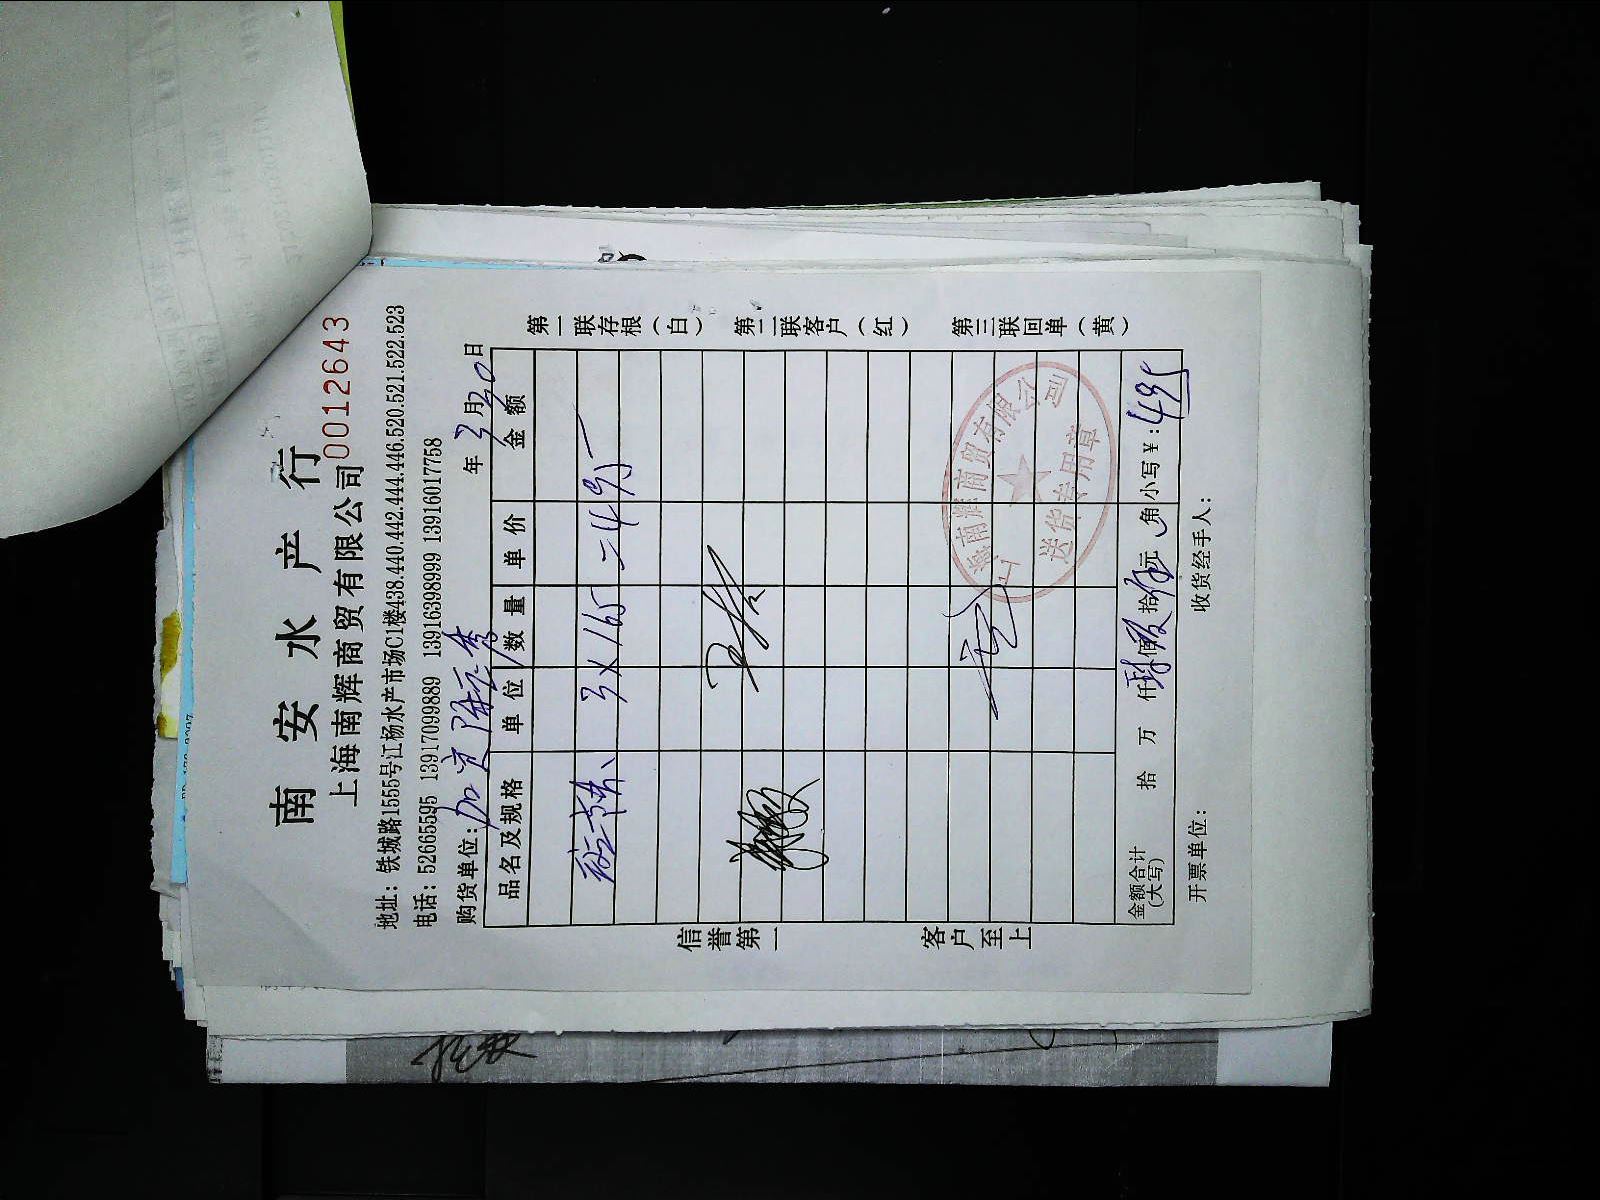 南安水产行
上海南辉商贸有限公司 0012643
地址：铁城路1555号江杨水产市场C1楼438.440.442.444.446.520.521.522.523
电话：52665595 13917099889 13916398999 13916017758
购货单位： 年 3月20日
品名及规格 单位 数量 单价 金额
3×165=495
第一联存根（白） 第二联客户（红） 第三联回单（黄）
信誉第一 客户至上
上海南辉商贸有限公司
送货专用章
金额合计（大写） 拾 万 仟 肆佰 玖拾 伍元 角 小写¥：495
开票单位： 收货经手人：